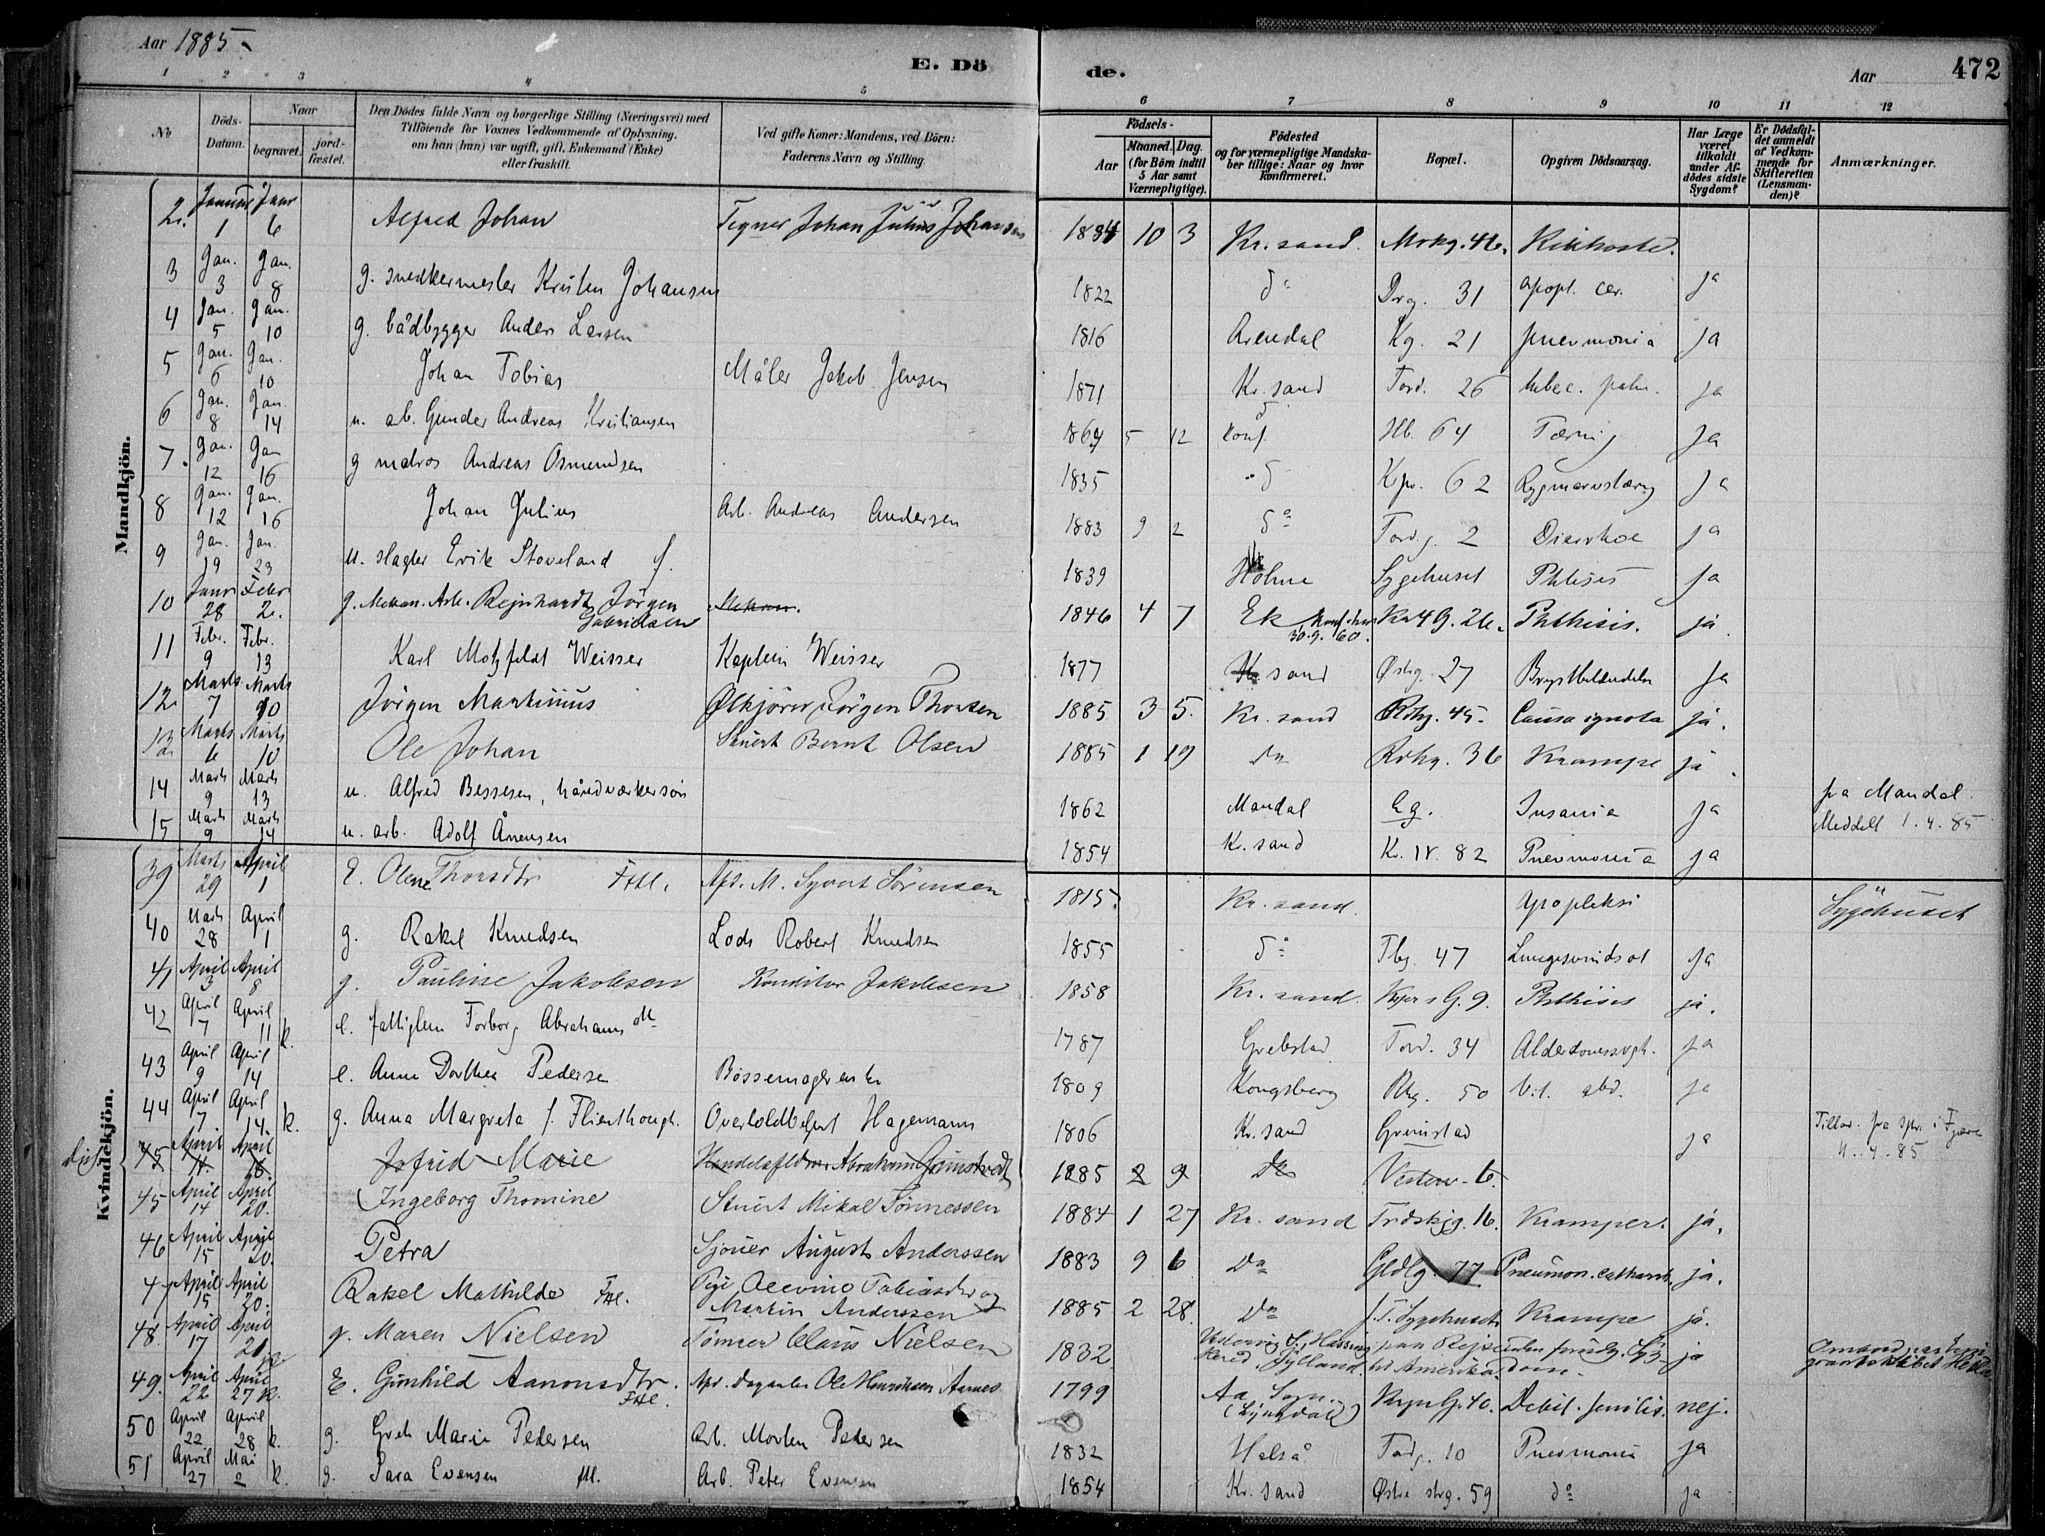 Aar 1885
E. Dö
de.
Aar
472
1 2 3 4 5 6 7 8 9 10 11 12
No
Döds-Datum.
Naar
begravet.
jord-fæstet.
Den Dödes fulde Navn og borgerlige Stilling (Næringsvei) med
Tilföiende for Voxnes Vedkommende af Oplysning,
om han (hun) var ugift, gift, Enkemand (Enke)
eller fraskilt.
Ved gifte Koner: Mandens, ved Börn:
Faderens Navn og Stilling
Födsels-
Aar
Maaned. Dag.
(for Börn indtil
5 Aar samt
Værnepligtige).
Födested
og for værnepligtige Mandska-
ber tillige: Naar og hvor
Konfirmeret.
Bopæl.
Opgiven Dödsaarsag.
Har Læge
været
tilkaldt
under Af-
dödes sidste
Sygdom?
Er Dödsfal-
det anmeldt
af Vedkom-
mende for
Skifteretten
(Lensman-
den)?
Anmærkninger.
Mandkjön.
2. Januar 1 Januar 6 Alfred Johan Tegner Johan Julius Johansen 1884 10 3 Kr.sand. Mrkg. 46. Kikhoste.
3 Jan. 3 Jan. 8 g. snedkermester Kristen Johansen 1822 do Drg. 31 apopl. cer. ja
4 Jan. 5 Jan. 10 g. bådbygger Anders Larsen 1816 Arendal Kg. 21 pnevmonia ja
5 Jan. 6 Jan. 10 Johan Tobias Maler Jakob Jensen 1871 Kr.sand Tord. 26 tuberc. pulm. ja
6 Jan. 8 Jan. 14 u. arb. Gunder Andreas Kristiansen 1869 5 12 do konf. Hb. 64 Tæring ja
7. Jan. 12 Jan 16 g matros Andreas Osmundsen 1835 do Kpr. 62 Rygmarvstæring ja
8 Jan. 12 Jan. 16 Johan Julius Arb. Andreas Andersen 1883 9 2 do Tordg. 2 Diarrhoe ja
9 Jan. 19 Jan. 23 u. slagter Erik Stoveland f. 1839 Holme Sygehuset Phtisis ja
10 Januar 28 Febr 2. g. Mekan. Arb. Reinhardt Jörgen Gabrielsen 1846 4 7 Ek 30.9.60. Phthisis. ja
11 Febr. 9 Febr. 13 Karl Motzfeldt Weisser Kaptein Weisser 1877 Kr.sand Østrg. 27 Brystbetændelse ja
12. Marts 7 Marts 10 Jörgen Martinius Ølkjörer Jörgen Thorsen 1885 3 5. Kr.sand Rdhg. 45. Causa ignota ja.
13 Marts 6 Marts 10 Ole Johan Stuert Bernt Olsen 1885 1 19 do Rdhg. 36 Krampe ja.
14 Marts 9 Marts 13 u. Alfred Bessesen, håndværkersön 1862 Mandal Eg. Insania ja fra Mandal. Meddelt 1.4.85
15 Marts 9 Marts 14 u. arb. Adolf Ånensen 1854 Kr.sand Kr. IV. 82 Pnevmonia ja
Kvindekjön.
39 Marts 29 April 1 E. Olene Thorsdtr FHl. Afd. M. Syvert Sörensen 1815. Kr.sand. Apopleksi Sygehuset
40 Marts 28 April 1 g. Rakel Knudsen Lods Robert Knudsen 1855 do Tbg. 47 Lungesvindsot ja
41 April 3 April 8 g. Pauline Jakobsen Konditor Jakobsen 1858 Kr.sand. Kpr s G. 9. Phthisis ja.
42 April 7 April 11 k. e. fattiglem Torborg Abrahamsdtr 1787 Grebstad Tord. 34 Alderdomssvgh. ja
43 April 9 April 14 e. Anne Dorthea Pedersen Bössemagerenke 1809 Kongsberg Rhg. 50 Vit. abd. ja
44 April 7 April 14. k. g. Anna Margreta f. Flienthough. Overtoldbetjent Hagemann 1806 Kr.sand Grimstad ja
4.4.85
45 April 11 April 18. Jofrid Marie Handelsfldm. Abraham 1885 2 9 do Vesterv. 6.
45 April 14 April 20. Ingeborg Thomine Stuert Mikal Tönnessen 1884 1 27 Kr. sand Trdskjg. 16. Kramper. ja.
46 April 15 April 20. Petra Sjöuer August Anderssen 1883 9 6 Do Gldlg. 77 Pneumon. catharrh. ja.
4 April 15 April 20. Rakel Mathilde FHl. Pige Olevine Tobiasdtr og Martin Anderssen 1885 2 28. Do f. T. Sygehuset Krampe ja.
48. April 17 April 21. g. Maren Nielsen Tömrer Claus Nielsen 1832 ja
49. April 22 April 27 k. E. Gunhild Aanonsdtr. FHl. Afd. Dagarb. Ole Henriksen Aamos 1799 Aa Sogn (Lyngdal) Kpr G. 40. Debil. senilis. nej.
50 April 22 April 28 k. g. Grete Marie Pedersen Arb. Morten Pedersen 1832 Halså Tordg. 10 Pnevmoni ja
51 April 27 Mai 2 k. g. Sara Evensen fHl. Arb. Peter Evensen 1854 Kr.sand Østre strg. 59 do ja